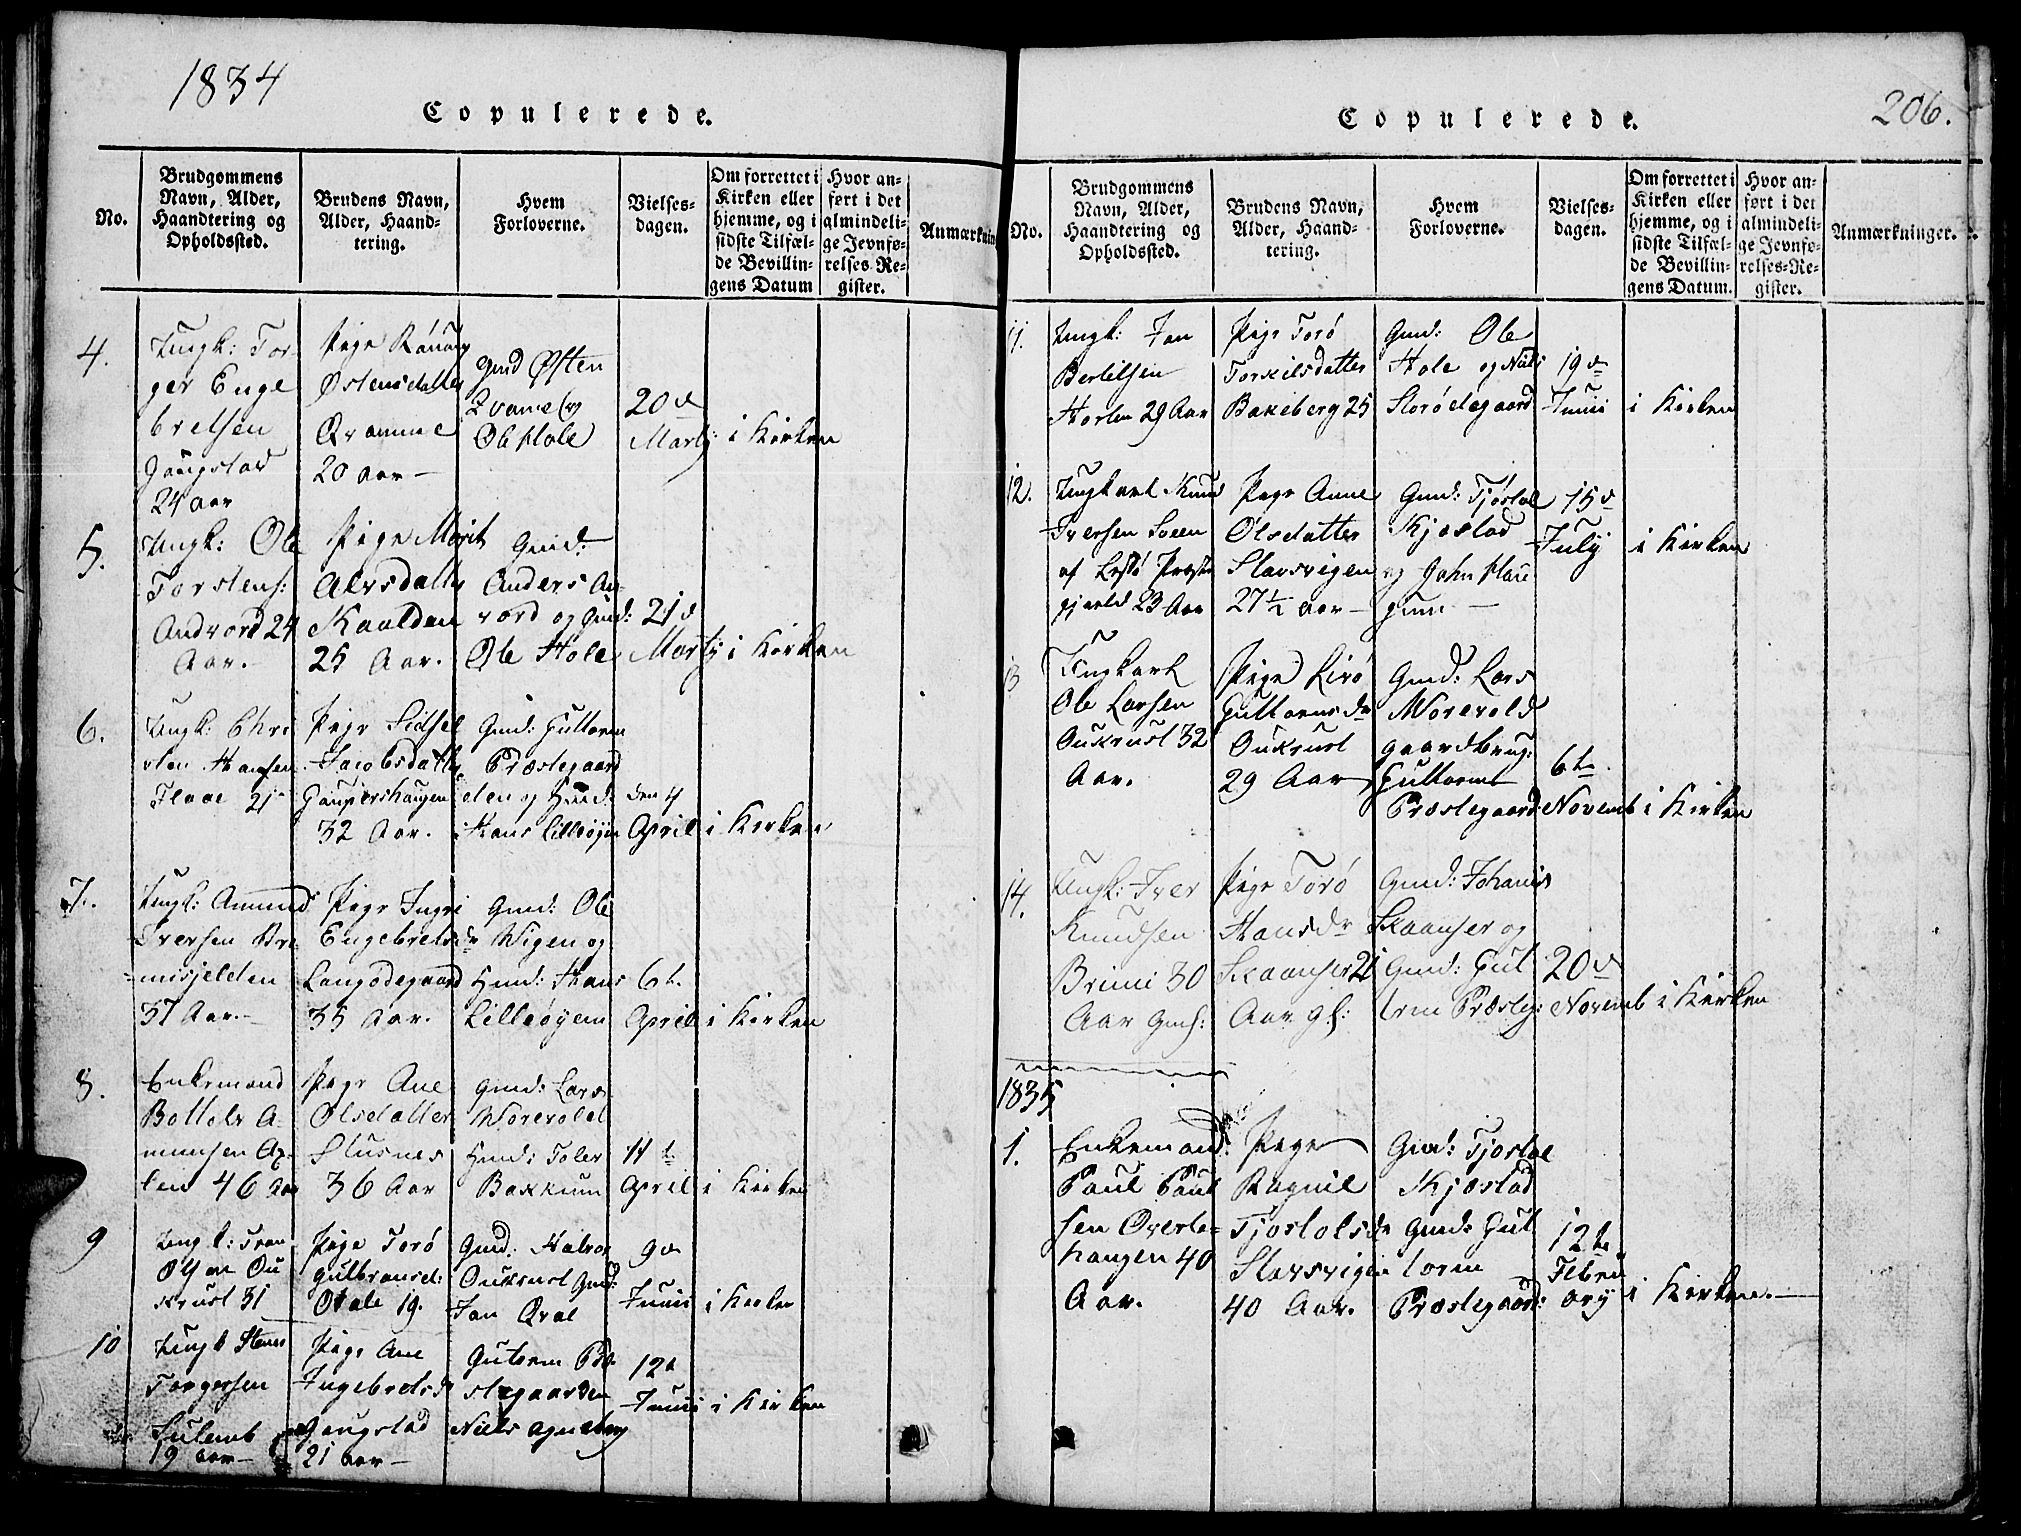 1834
Copulerede.
No.
Brudgommens
Navn, Alder,
Haandtering og
Opholdssted.
Brudens Navn,
Alder, Haand-
tering.
Hvem
Forloverne.
Vielses-
dagen.
Om forrettet i
Kirken eller
hjemme, og i
sidste Tilfæl-
de Bevillin-
gens Datum
Hvor an-
ført i det
almindeli-
ge Jevnfø-
relses-Re-
gister.
Anmærknin
4.
Ungk: Tor-
ger Enge
bretsen
Gaugstad
24 aar
Pige Rönnog
Østensdatter
Qvamme
20 aar —
Gmd Østen
Qvame og
Ole Hole
20 d
Martj
i Kirken
5.
Ungk: Ole
Torstens:
Andvord 24
Aar. -
Pige Marit
Alvsdatter
Kaalden
25 Aar.
Gmd:
Anders An-
vord og Gmd:
Ole Hole
21 d
Martj
i Kirken
6.
Ungk: Chri
sten Hansen
Flaae 21
Pige Sidsel
Jacobsdatter
Gaupershaugen
32 Aar.
Gmd: Guttorm
Præstegaard
den og Hmd:
Hans Lilleøyen
den 4
April
i Kirken
7.
Ungk: Amund
Iversen
misjelden
37 Aar. -
Pige Ingri
Engebretsdr
Langødegaard
35 Aar.
Gmd: Ole
Wigen og
Hmd: Hans
Lilleøyen
6 t.
April
i Kirken
8.
Enkemand
Bottolv A-
munsen
46 Aar
Pige Ane
Olsdatter
Slusnes
36 Aar
Gmd: Lars
Worevold
Hmd: Toler
Bakkum
11 t
April
i Kirken
9
Ungk:
Olsen Ou
krust 31
Pige Torö
Gulbransd:
19.
Gmd: Halvor
Oukrust Gmd:
Jan Qval
9 d
Junii
i Kirken
10
Ungk
Torgersen
19 aar —
Pige Ane
Ingebretsd
Gaugstad
21 aar —
Gutorm Præ-
stegaarden
Niels Agneberg
12 t
Junii
i Kirken
Copulerede.
206.
No.
Brudgommens
Navn, Alder,
Haandtering og
Opholdssted.
Brudens Navn,
Alder, Haand-
tering.
Hvem
Forloverne.
Vielses-
dagen.
Om forrettet i
Kirken eller
hjemme, og i
sidste Tilfæl-
de Bevillin-
gens Datum.
Hvor an-
ført i det
almindeli-
ge Jevnfø-
relses-Re-
gister.
Anmærkninger.
11.
Ungk: Jan
Bertelsen
Horten 29 Aar
Pige Torö
Torkilsdatter
Bakeberg 25
Gmd: Ole
Hole og Niels
Storödegaard
19 d
Junii
i Kirken
12.
Ungkarl Knud
Iversen Sveen
af Lessö Præste
gjæeld 23 Aar
Pige Anne
Olsdatter
Slavsvigen
27 ½ aar —
Gmd: Tjöstol
Kjæstad
og John Hau
gum —
15 d
July
i Kirken
13
Ungkarl
Ole Larsen
Oukrust 32
Aar.
Pige Livö
Guttormsdr
Oukrust
29 Aar
Gmd: Lars
Worevold
gaardbrug:
Guttorm
Præstegaard
6 te
Novemb
i Kirken
14.
Ungk: Iver
Knudsen
Brimi 30
Aar Gmsf:
Pige Torö
Hansdr
Skaanser 21
Aar gl:
Gmd: Johanis
Skaanser og
Gmd: Gut
torm Præsteg:
20 d
Novemb
i Kirken
1835
1.
Enkemand
Paul Paul
sen Øverli-
haugen 40
Aar.
Pige
Ragnil
Tjostolsdr
Slavsvigen
40 Aar.
Gmd: Tjostol
Kjæstad
Gmd: Gut
torm
Præstegaard:
12 te
Febru
ary
i Kirken. —